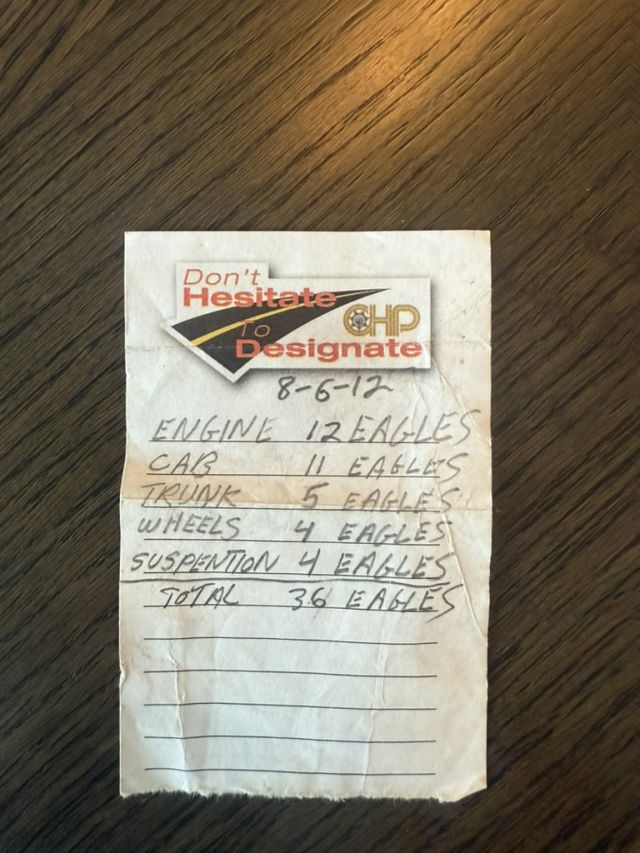 Don't
Hesitate
To
Designate
CHP
8-6-12
ENGINE 12 EAGLES
CAR 11 EAGLES
TRUNK 5 EAGLES
WHEELS 4 EAGLES
SUSPENTION 4 EAGLES
TOTAL 36 EAGLES